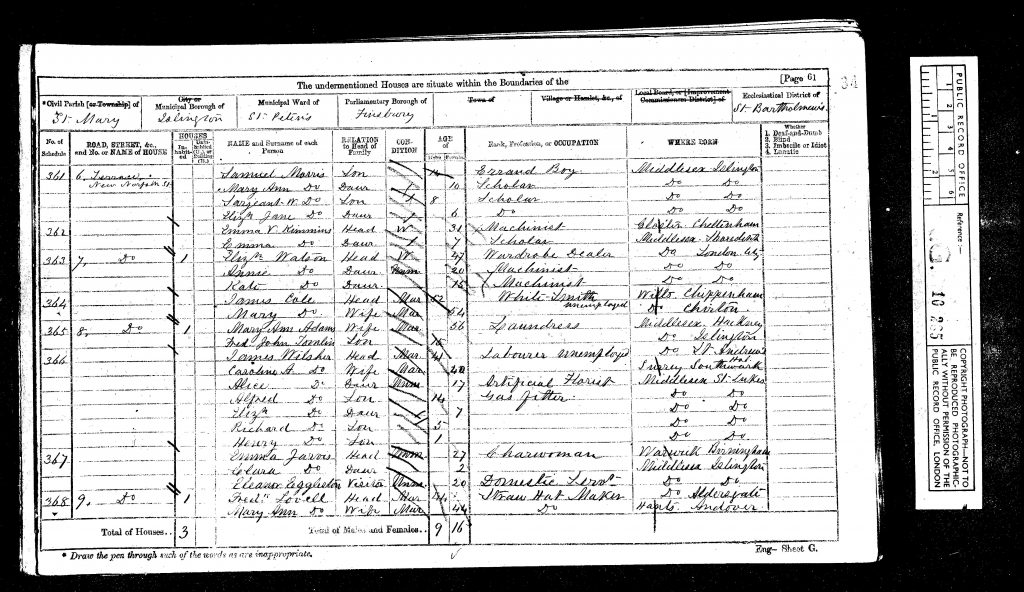 The undermentioned Houses are situate within the Boundaries of the
[Page 61
34
*Civil Parish [or Township] of
St. Mary
City or Municipal Borough of
Islington
Municipal Ward of
St. Peter's
Parliamentary Borough of
Finsbury
Town of
Village or Hamlet, &c., of
Local Board, or [Improvement Commissioners District] of
Ecclesiastical District of
St. Bartholmew's
No. of Schedule
ROAD, STREET, &c., and No. or NAME of HOUSE
HOUSES
Inhabited
NAME and Surname of each Person
RELATION to Head of Family
CONDITION
AGE of
Males
Females
Rank, Profession, or OCCUPATION
WHERE BORN
Whether
1. Deaf-and-Dumb
2. Blind
3. Imbecile or Idiot
4. Lunatic
361 6, Terrace, Samuel Morris Son Errand Boy Middlesex Islington
New Norfolk St. Mary Ann Do Daur 10 Scholar Do Do
Sargeant W. Do Son 8 Scholar Do Do
Elizth Jane Do Daur 6 Do Do Do
362 Emma V. Kimmins Head W 31 Machinist Gloster Cheltenham
Emma Do Daur 7 Scholar Middlesex Shoreditch
363 7, Do 1 Elizth Watson Head W 47 Wardrobe Dealer Do London City
Annie Do Daur Unm 20 Machinist Do Do
Kate Do Daur 15 Machinist Do Do
364 James Cole Head Mar 52 White Smith unemployed Wilts Chippenham
Mary Do Wife Mar 54 Do Chirton
365 8, Do 1 Mary Ann Adams Wife Mar 56 Laundress Middlesex Hackney
Fred John Tomlin Son Do Islington
366 James Wilsher Head Mar 41 Labourer unemployed Do St. Andrews
Caroline A. Do Wife Mar 40 Surrey Southwark
Alice Do Daur Unm 17 Artificial Florist Middlesex St. Lukes
Alfred Do Son 14 Gas fitter Do Do
Elizth Do Daur 7 Do Do
Richard Do Son 5 Do Do
Henry Do Son 1 Do Do
367 Emma Jarvis Head Unm 27 Charwoman Warwick Birmingham
Clara Do Daur 2 Middlesex Islington
Eleanor Eggleton Visitor Unm 20 Domestic Servt Do Do
368 9, Do 1 Fredk Lovell Head Mar 44 Straw Hat Maker Do Aldersgate
Mary Ann Do Wife Mar 44 Do Hants Andover
Total of Houses.. 3
Total of Males and Females.. 9 16
* Draw the pen through such of the words as are inappropriate.
Eng— Sheet G.
PUBLIC RECORD OFFICE
1 2 3 4 5 6
1 2
Reference:—
COPYRIGHT PHOTOGRAPH—NOT TO
BE REPRODUCED PHOTOGRAPHIC-
ALLY WITHOUT PERMISSION OF THE
PUBLIC RECORD OFFICE, LONDON